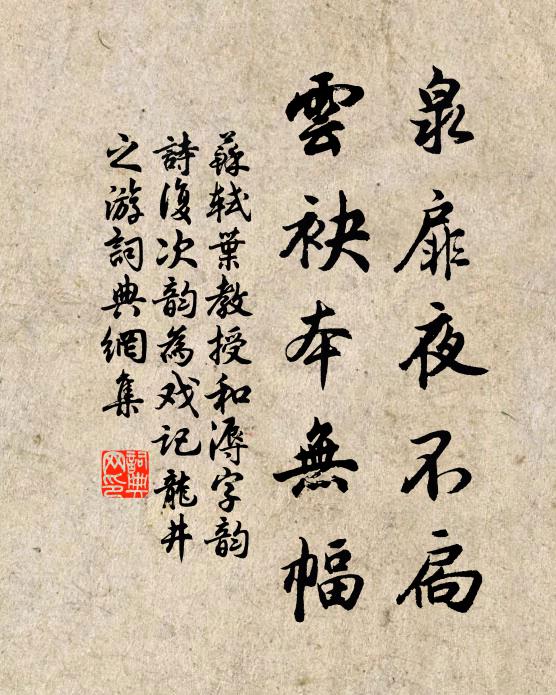 泉扉夜不扃
雲袂本無幅
蘇軾葉教授和溽字韵
詩復次韵為戏記龍井
之游詞典網集
詞典网印